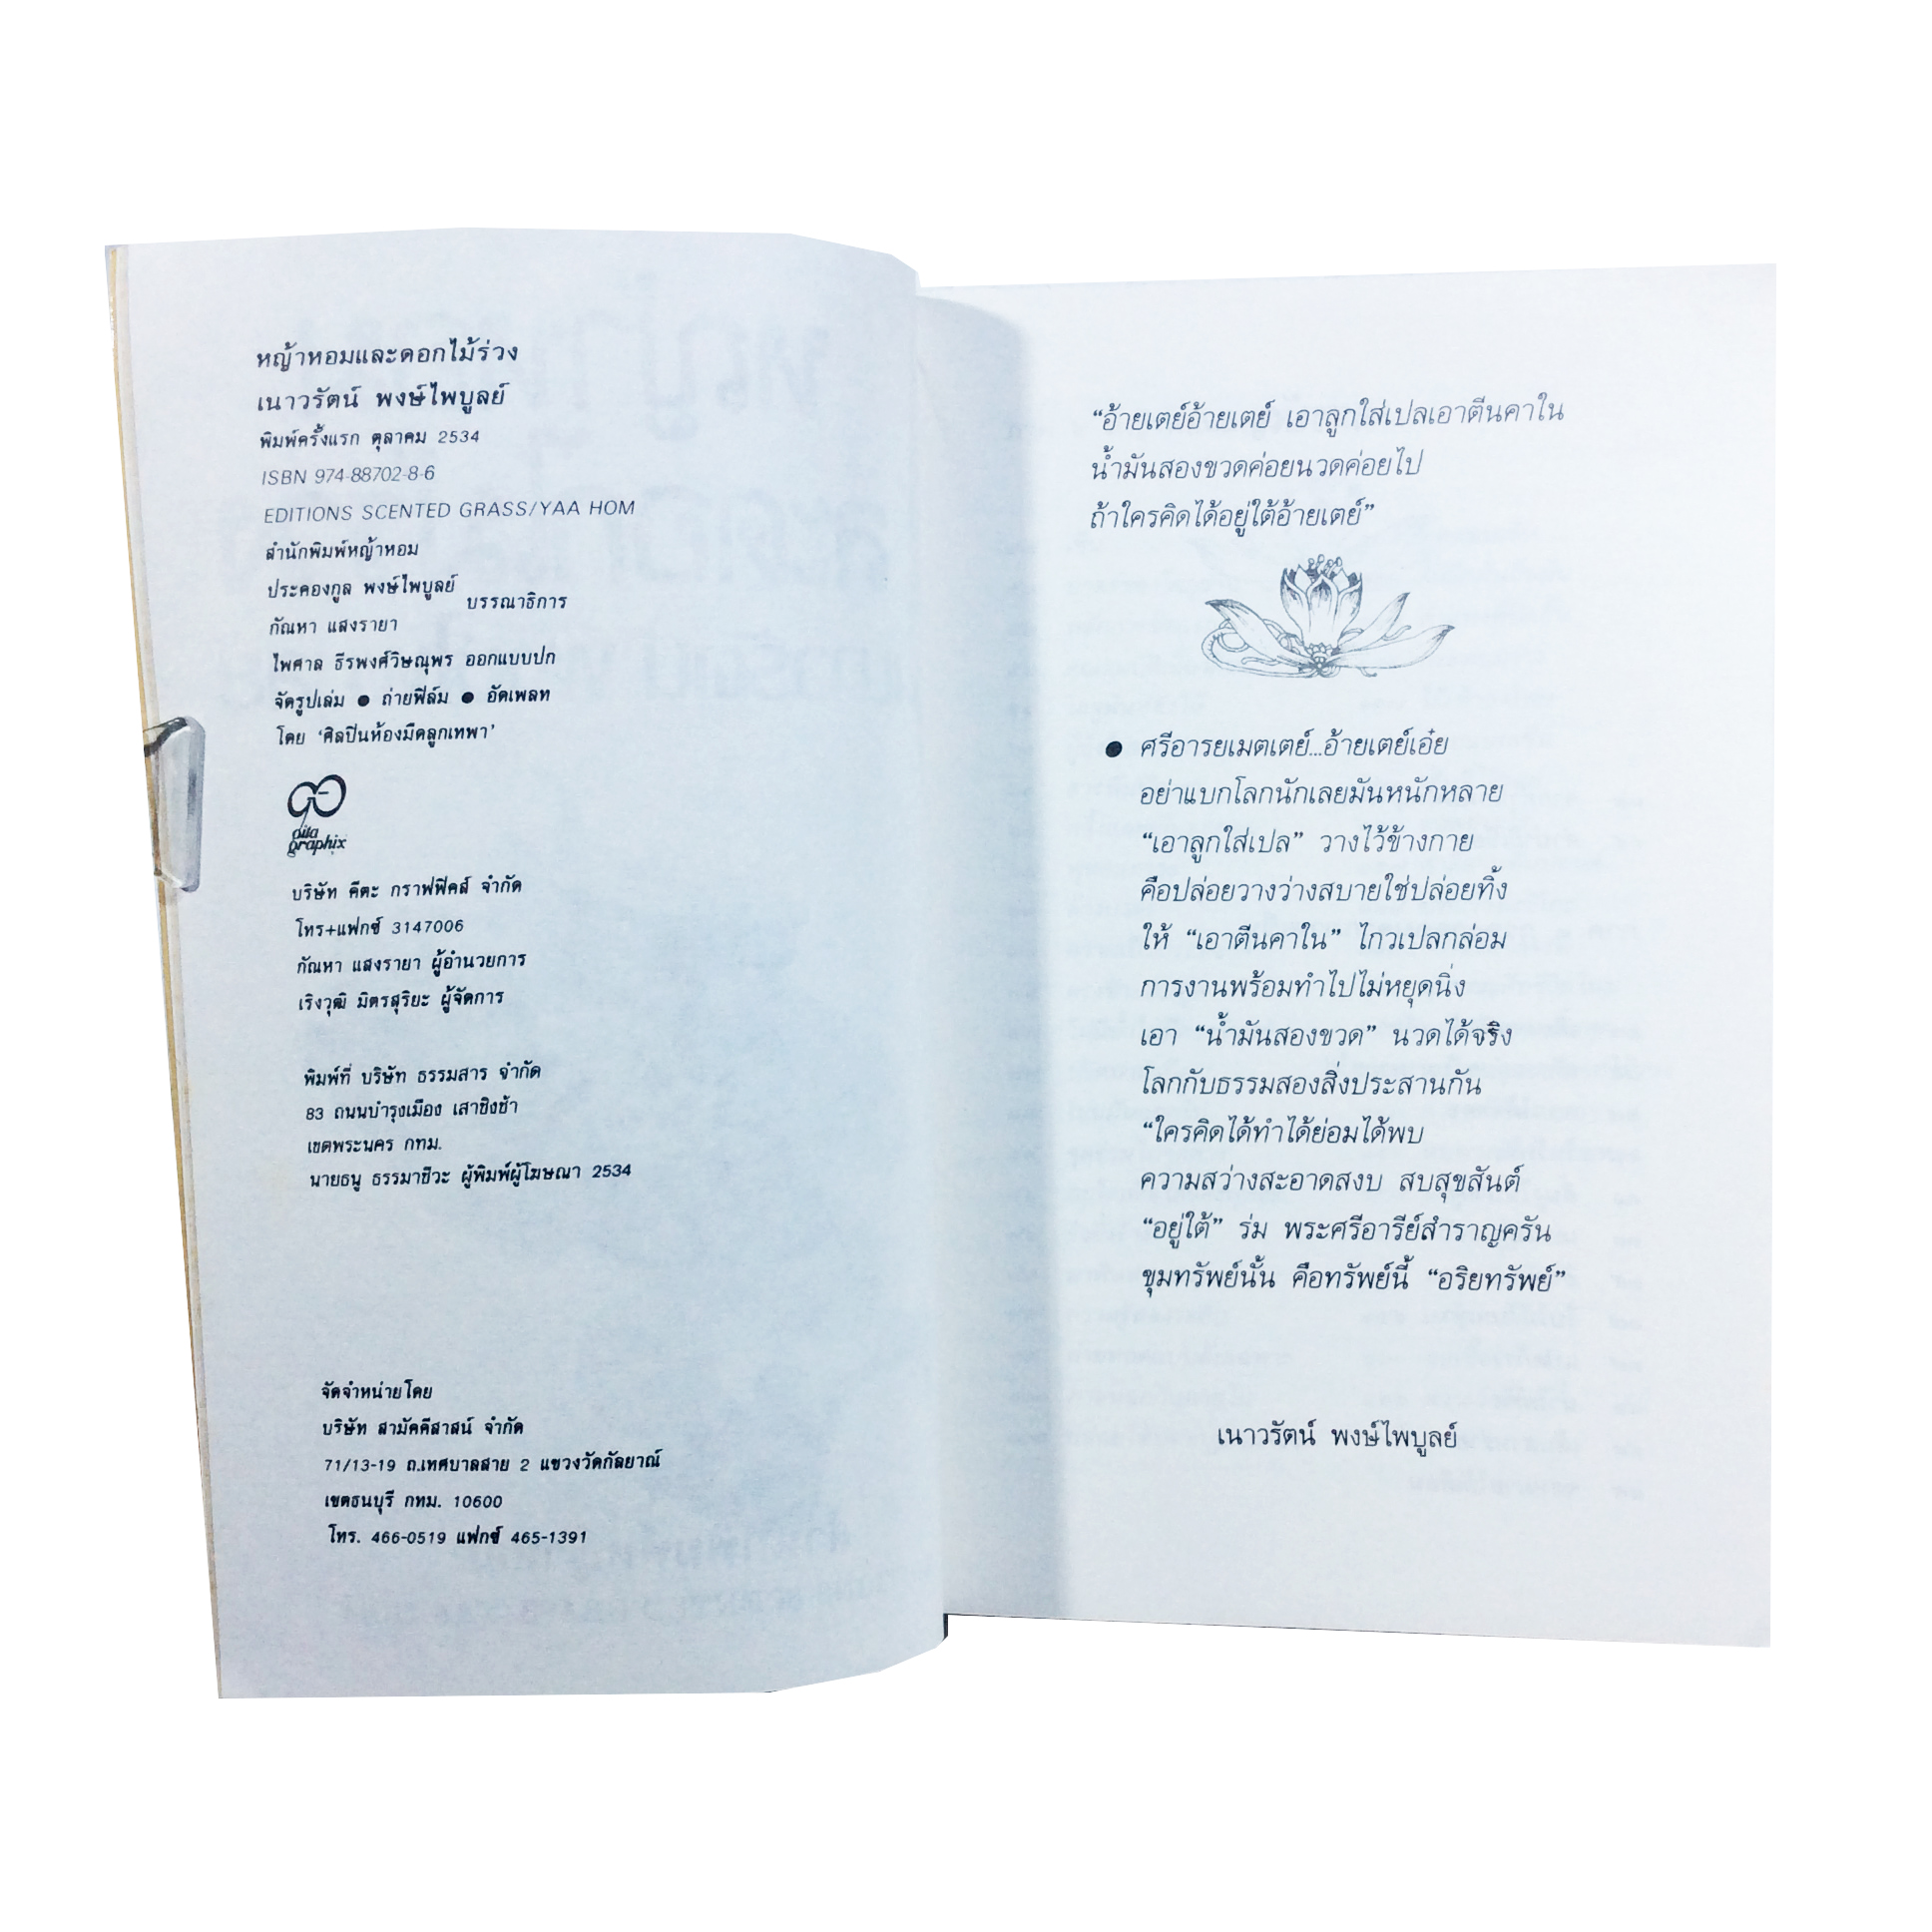 หญ้าหอมและดอกไม้ร่วง
เนาวรัตน์ พงษ์ไพบูลย์
พิมพ์ครั้งแรก ตุลาคม 2534
ISBN 974-88702-8-6
EDITIONS SCENTED GRASS/YAA HOM
สำนักพิมพ์หญ้าหอม
ประคองกูล พงษ์ไพบูลย์
บรรณาธิการ
กัณหา แสงรายา
ไพศาล ธีรพงศ์วิษณุพร ออกแบบปก
จัดรูปเล่ม ● ถ่ายฟิล์ม ● อัดเพลท
โดย ‘ศิลปินห้องมืดลูกเทพา’
gita
graphix
บริษัท คีตะ กราฟฟิคส์ จำกัด
โทร+แฟกซ์ 3147006
กัณหา แสงรายา ผู้อำนวยการ
เริงวุฒิ มิตรสุริยะ ผู้จัดการ
พิมพ์ที่ บริษัท ธรรมสาร จำกัด
83 ถนนบำรุงเมือง เสาชิงช้า
เขตพระนคร กทม.
นายธนู ธรรมาชีวะ ผู้พิมพ์ผู้โฆษณา 2534
จัดจำหน่ายโดย
บริษัท สามัคคีสาสน์ จำกัด
71/13-19 ถ.เทศบาลสาย 2 แขวงวัดกัลยาณ์
เขตธนบุรี กทม. 10600
โทร. 466-0519 แฟกซ์ 465-1391
“อ้ายเตย์อ้ายเตย์ เอาลูกใส่เปลเอาตีนคาใน
น้ำมันสองขวดค่อยนวดค่อยไป
ถ้าใครคิดได้อยู่ใต้อ้ายเตย์”
● ศรีอารยเมตเตย์...อ้ายเตย์เอ๋ย
อย่าแบกโลกนักเลยมันหนักหลาย
“เอาลูกใส่เปล” วางไว้ข้างกาย
คือปล่อยวางว่างสบายใช่ปล่อยทิ้ง
ให้ “เอาตีนคาใน” ไกวเปลกล่อม
การงานพร้อมทำไปไม่หยุดนิ่ง
เอา “น้ำมันสองขวด” นวดได้จริง
โลกกับธรรมสองสิ่งประสานกัน
“ใครคิดได้ทำได้ย่อมได้พบ
ความสว่างสะอาดสงบ สบสุขสันต์
“อยู่ใต้” ร่ม พระศรีอารีย์สำราญครัน
ขุมทรัพย์นั้น คือทรัพย์นี้ “อริยทรัพย์”
เนาวรัตน์ พงษ์ไพบูลย์